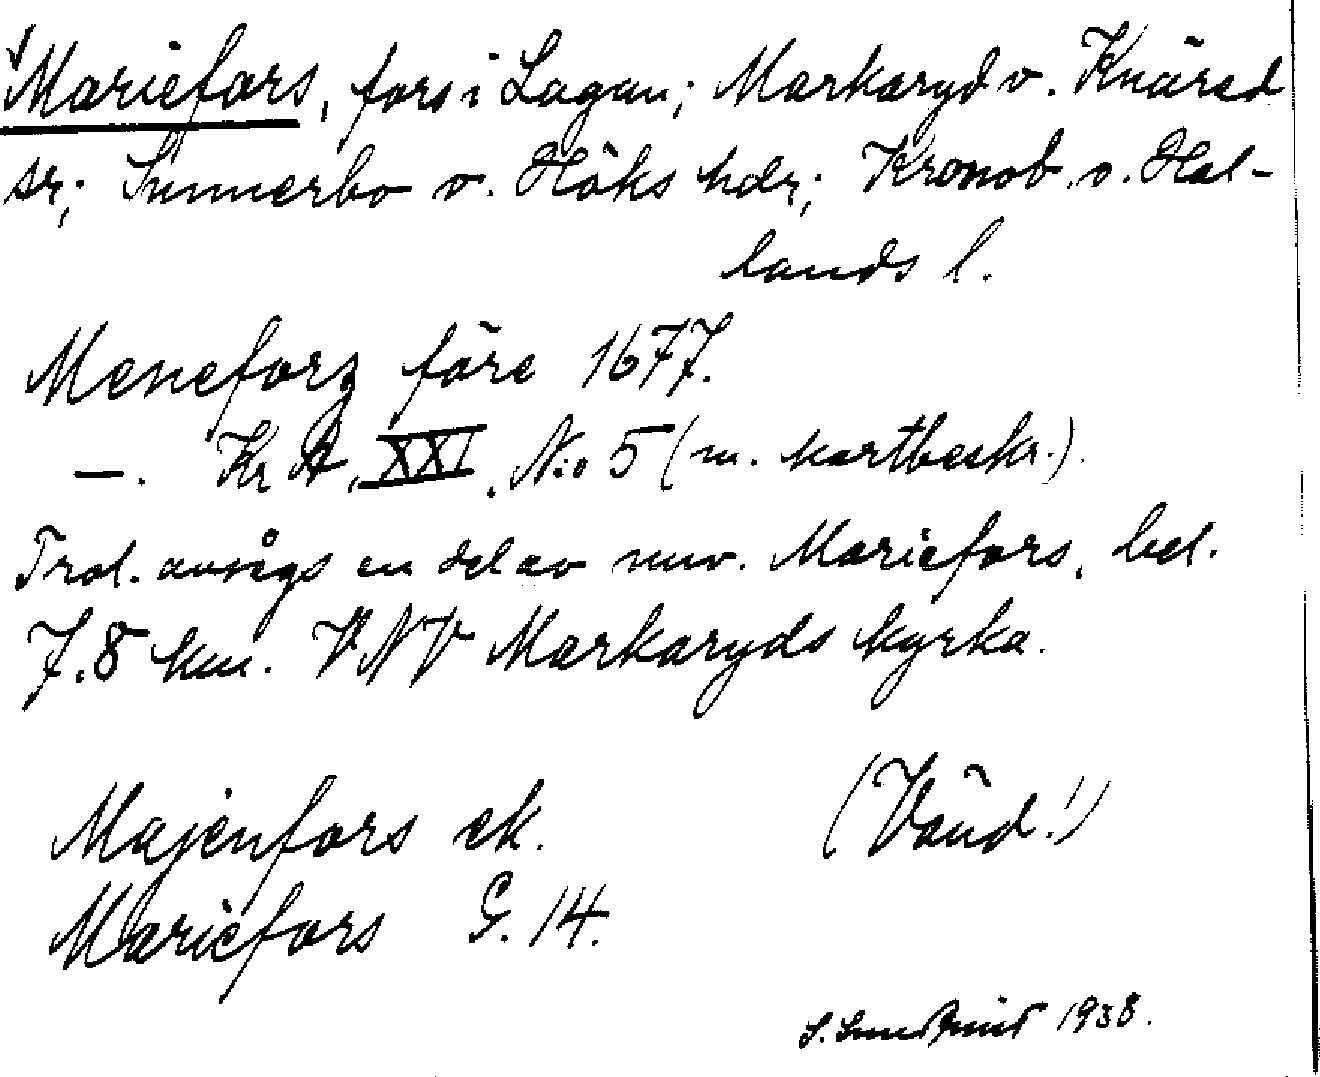 Mariefors, fors i Lagan; Markaryd o. Knäred
sr; Sunnerbo o. Höks hdr; Kronob. o. Hal-
lands l.
Meneforz före 1677.
—. Kr A, XXI, N:o 5 (m. kartbeskr.).
Trol. avsågs en del av nuv. Mariefors, bel.
7.8 km. VNV Markaryds kyrka.
Majenfors ek. (Vänd!)
Mariefors G. 14.
1938.